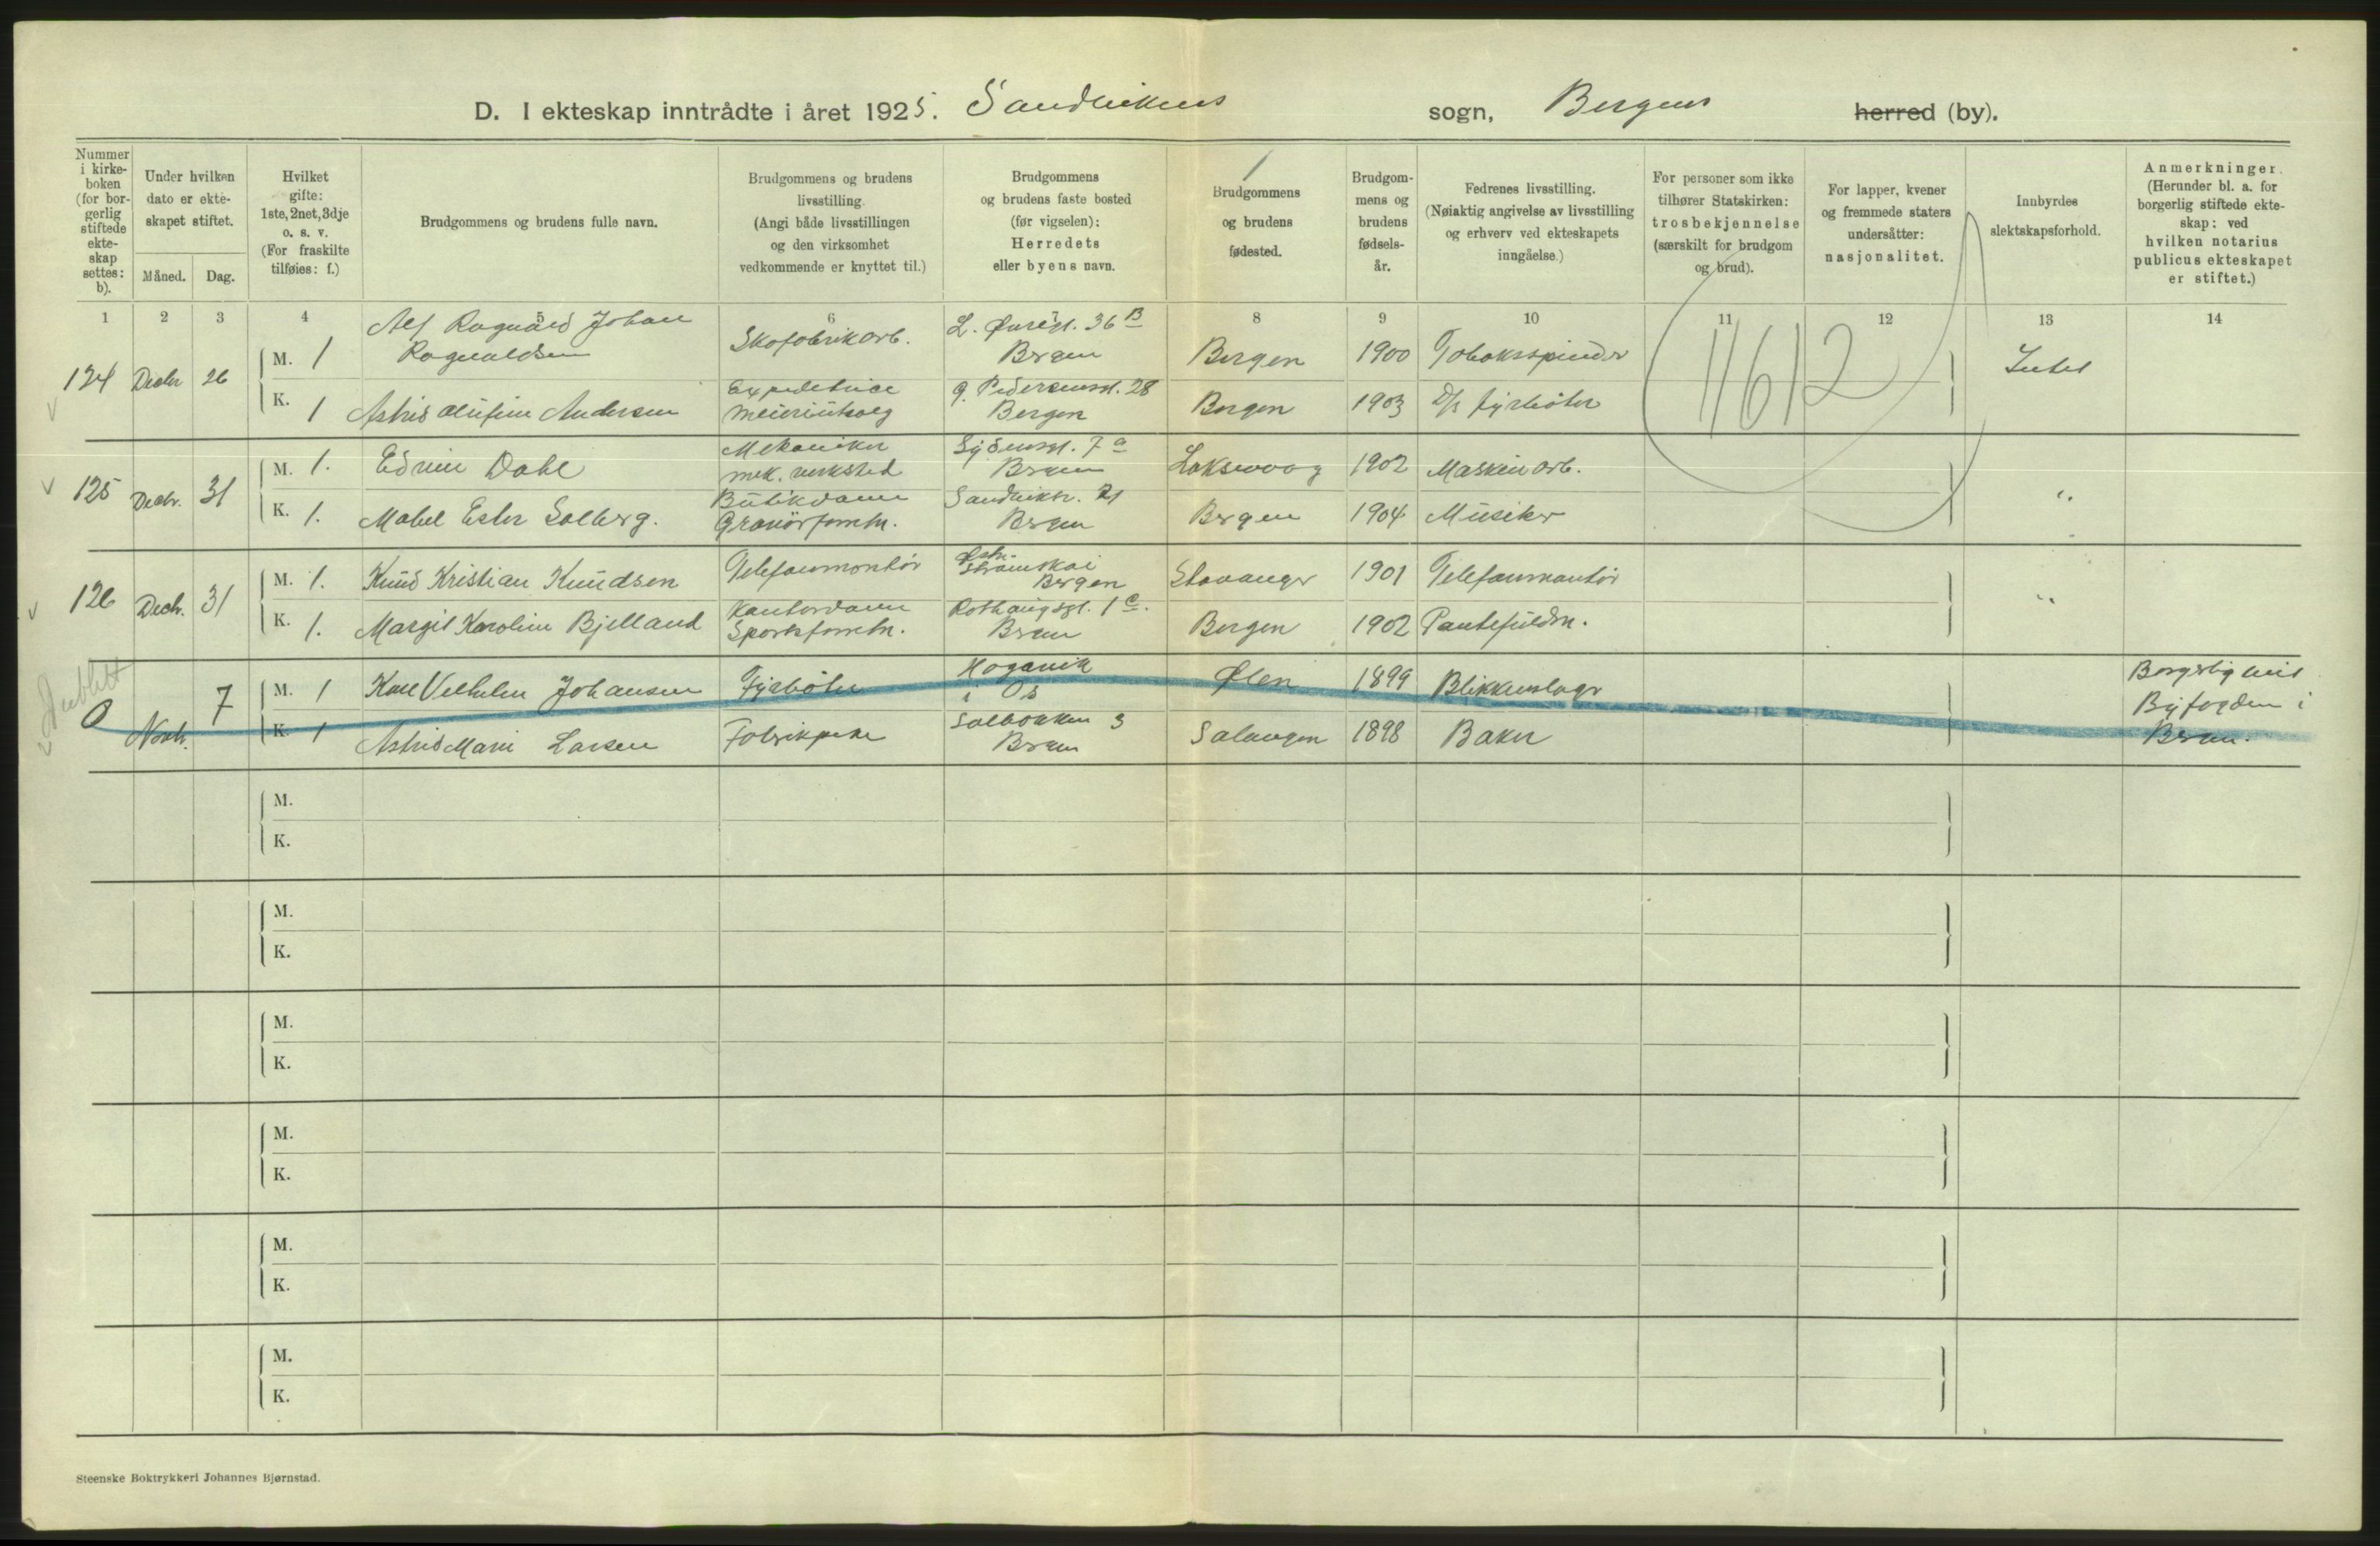 D. I ekteskap inntrådte i året 1925. Sandvikens sogn, Bergens herred (by).
Nummer i kirkeboken (for borgerlig stiftede ekteskap settes: b).
Under hvilken dato er ekteskapet stiftet.
Måned.
Dag.
Hvilket gifte: 1ste, 2net, 3dje o. s. v. (For fraskilte tilføies: f.)
Brudgommens og brudens fulle navn.
Brudgommens og brudens livsstilling. (Angi både livsstillingen og den virksomhet vedkommende er knyttet til.)
Brudgommens og brudens faste bosted (før vigselen): Herredets eller byens navn.
Brudgommens og brudens fødested.
Brudgommens og brudens fødselsår.
Fedrenes livsstilling. (Nøiaktig angivelse av livsstilling og erhverv ved ekteskapets inngåelse.)
For personer som ikke tilhører Statskirken: trosbekjennelse (særskilt for brudgom og brud).
For lapper, kvener og fremmede staters undersåtter: nasjonalitet.
Innbyrdes slektskapsforhold.
Anmerkninger. (Herunder bl. a. for borgerlig stiftede ekteskap: ved hvilken notarius publicus ekteskapet er stiftet.)
1 2 3 4 5 6 7 8 9 10 11 12 13 14
11612
124 Decbr 26
M. 1 Alf Ragnvald Johan Ragnvaldsen Skofabrikarb. L. Øureg. 36 B Bergen Bergen 1900 Tobaksspinder Intet
K. 1 Astrid Olufine Andersen Expeditrice meieriutsalg G. Pedersensgt. 28 Bergen Bergen 1903 D/s fyrbøter
125 Decbr. 31
M. 1. Edvin Dahl Mekaniker mek. verksted Lydersgt. 7 a Bergen Laksevaag 1902 Maskinarb. "
K. 1. Mabel Ester Solberg. Butikdame Granørforretn. Sandviksv. 21 Bergen Bergen 1904 Musiker
126 Decbr. 31
M. 1. Knud Kristian Knudsen Telefonmontør Østre Strømkai Bergen Stavanger 1901 Telefonmontør "
K. 1. Margit Karoline Bjelland Kontordame Sportsforretn. Rothaugsgt. 1 c. Bergen Bergen 1902 Pantefuldm.
Dublett
0 Novbr. 7
M. 1 Karl Vilhelm Johansen Fyrbøter Haganik i Os Ølen 1899 Blikkenslager Borgerlig viet Byfogden i Bergen.
K. 1 Astrid Marie Larsen Fabrikpike Solbakken 3 Bergen Salangen 1898 Baker
M.
K.
M.
K.
M.
K.
M.
K.
M.
K.
M.
K.
Steenske Boktrykkeri Johannes Bjørnstad.